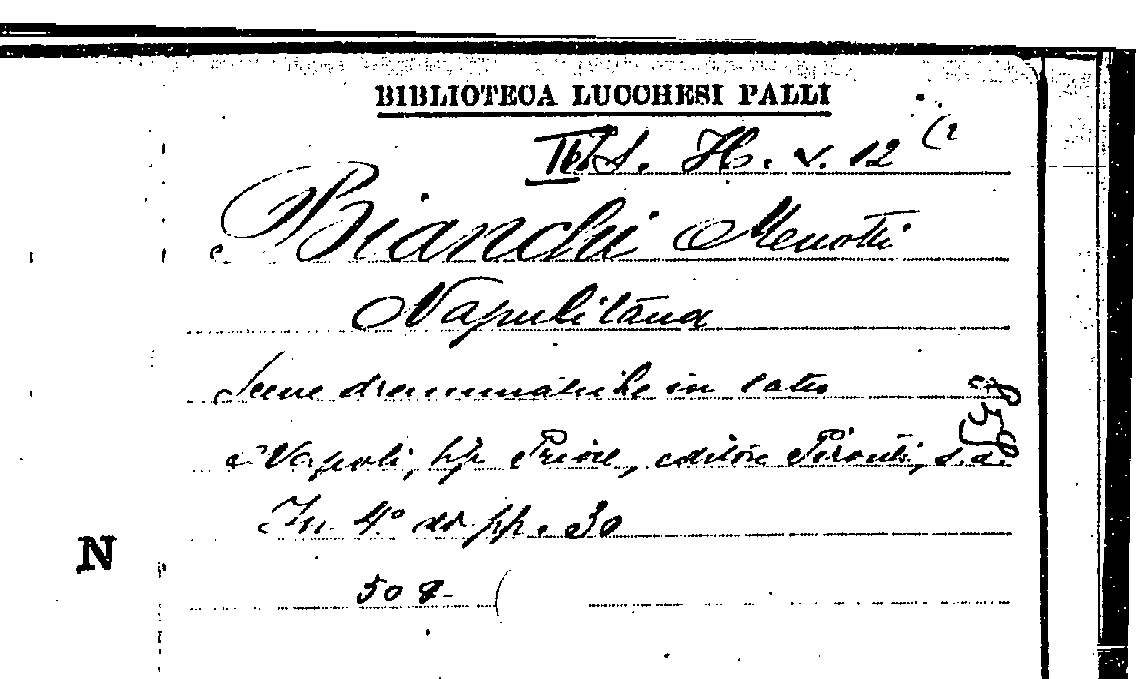 BIBLIOTECA LUCCHESI PALLI
S. H. V. 12 (2
Bianchi Menotti
Napulitana
Scene drammatiche in 1 atto
Napoli, tip Priore, editore Pironti, s.a.
In 4° di pp. 30
N